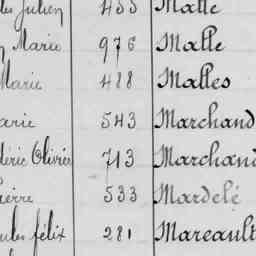 des Julien 455 Malle
Marie 976 Malle
Marie 488 Malles
Marie 543 Marchand
déric Olivier 713 Marchand
ierre 533 Mardelé
ules félix 281 Mareault